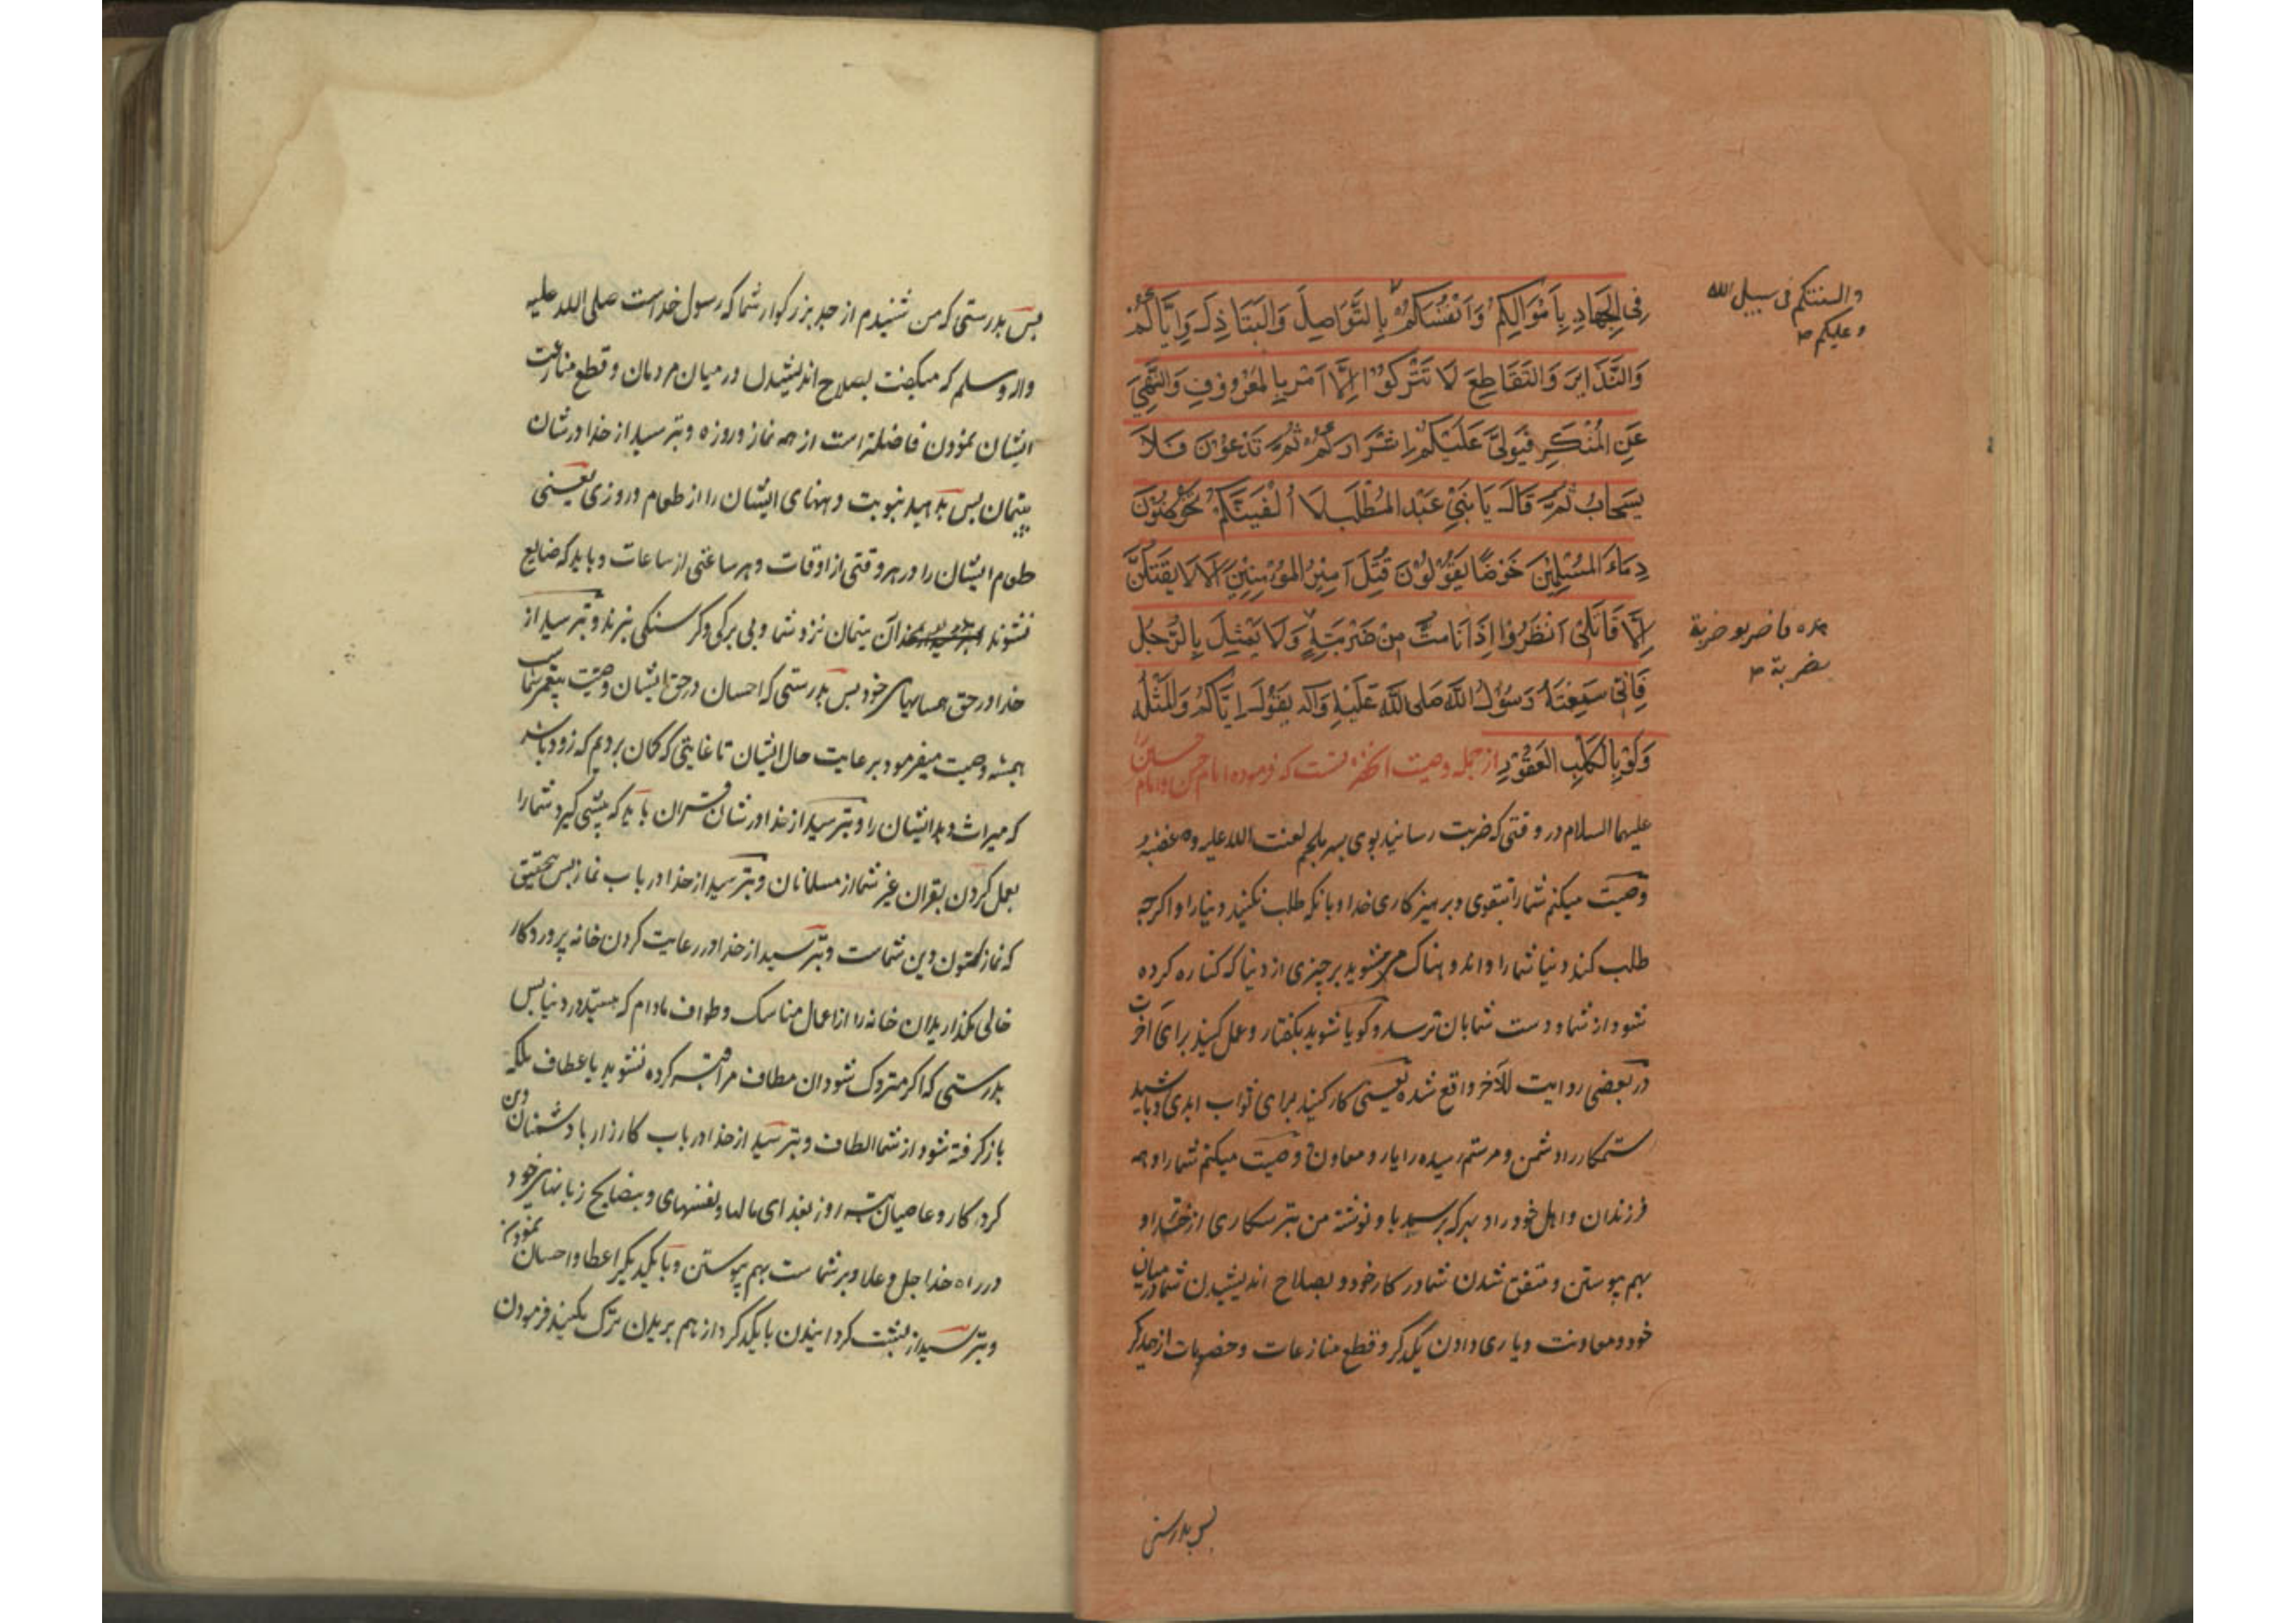 فِی الجِهَادِ بِاَمْوَالِکُمْ وَاَنْفُسِکُمْ بِالتَّوَاصِلَ وَالتَبَاذِلَ وَاِیَّاکُمْ
وَالتَّدَابِرَ وَالتَقَاطِعَ لَا تَتْرِکُوْا اِلَّا اَمْرَ بِالمَعْرُوْفِ وَالنَّهْیَ
عَنِ المُنْکَرِ فَیُوَلِیَّ عَلَیْکُمْ اِشْرَارَکُمْ ثُمَّ تَدْعُوْنَ فَلَا
یُسْتَجَابُ ثُمَّ قَالَ یَا بَنِیْ عَبْدِ المُطَّلَبِ لَا اُلْفِیَنَّکُمْ تَخُوْضُوْنَ
دِمَاءَ المُسْلِمِیْنَ خَوْضًا یَقُوْلُوْنَ قُتِلَ اَمِیْرُ المُؤْمِنِیْنَ اَلَا لَا یَقْتَلُنَّ
اِلَّا قَاتِلِیْ اُنْظُرُوْا اِذَا نَامِتُّ مِنْ ضَرْبَتِهِ وَلَا یَمْثِلَ بِالرَّجُلِ
فَاِنِّی سَمِعْتُهُ رَسُوْلُ اللّٰهِ صَلَی اللّٰه عَلَیْهِ وَآلِه یَقُوْلُ اِیَّاکُمْ وَالمُثْلَه
وَلَوْ بِالکَلْبِ العَقُوْرِ از جمله وصیت آنحضرتست که فرموده امام حسن و امام حسین را
علیهما السلام در وقتی که ضربت رسانید بوی پسر ملجم لعنت الله علیه و غضبه
وصیت میکنم شما را بتقوی و پرهیزکاری خدا و بانکه طلب نکنید دنیا را و اکرچه
طلب کند دنیا شما را و اندوهناک مشوید بر چیزی از دنیا که کناره کرده
شود از شما و دست شما بان نرسد و کویا شوید بکفتار و عمل کنید برای آخرت
در بعضی روایت للآخر واقع شده یعنی کار کنید برای ثواب ابدی و باشید
ستمکار را دشمن و مر ستم رسیده را یار و معاون وصیت میکنم شما را و همه
فرزندان و اهل خود را و بهرکه برسد با و نوشته من بترسکاری از خدا و
بهم پیوستن و متفق شدن شما در کار خود و بصلاح اندیشیدن شما در میان
خود و معاونت و یاری دادن یکدکر و قطع منازعات و خصومات از همدیکر
پس بدرستی
والسنتکم فی سبیل الله
و علیکم
هذه فاضربوه ضربة
بضربة
پس بدرستی که من شنیدم از جد بزرکوار شما که رسول خداست صلی الله علیه
واله وسلم که میکفت بصلاح اندیشیدن در میان مردمان و قطع منازعت
ایشان نمودن فاضلتر است از همه نماز و روزه و بترسید از خدا در شان
یتیمان پس بدهید بنوبت دهنهای ایشان را از طعام و روزی یعنی
طعام ایشان را در هر وقتی از اوقات و هر ساعتی از ساعات و باید که ضایع
نشوند آن یتیمان نزد شما و بی برکی و کرسنکی نبرند و بترسید از
خدا در حق همسایهای خود پس بدرستی که احسان در حق ایشان وصیت پیغمبر شماست
همیشه وصیت میفرمود بر عایت حال ایشان تا غایتی که کمان بردیم که زود باشد
که میراث دهد ایشان را و بترسید از خدا در شان قران باید که پیشی نکیرد شما را
بعمل کردن بقران غیر شما از مسلمانان و بترسید از خدا در باب نماز پس بتحقیق
که نماز ستون دین شماست و بترسید از خدا در رعایت کردن خانه پروردکار
خالی مکذارید ان خانه را از اعمال مناسک و طواف مادام که هستید در دنیا پس
بدرستی که اکر متروک شود ان مطاف مراقبه کرده نشوید با عطاف بلکه
بازکرفته شود از شما الطاف و بترسید از خدا در باب کارزار با دشمنان دین
کردکار و عاصیان به روز بفدای مالها و نفسهای و بنصایح زبانهای خود
در راه خدا جل و علا و بر شماست بهم پیوستن و با یکدیکر اعطا و احسان نمودن
و بترسید از پشت کردانیدن با یکدکر و از هم بریدن ترک مکنید فرمودن